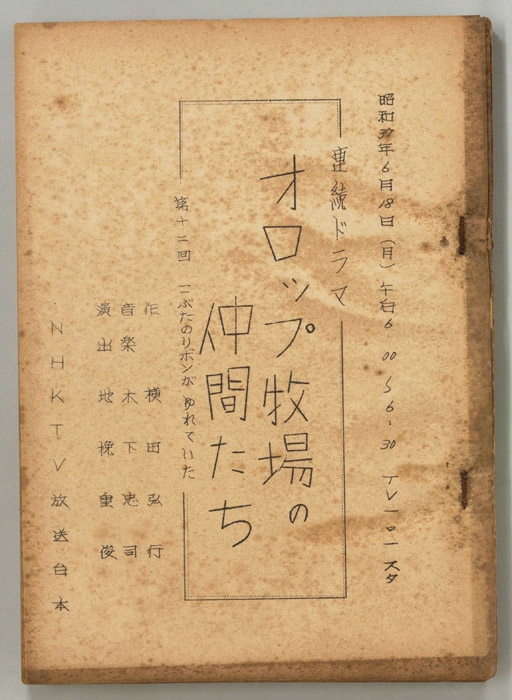 昭和37年6月18日(月)午后6.00〜6.30 TV一〇一スタ
連続ドラマ
オロップ牧場の
仲間たち
第十二回 こぶたのリボンが ゆれていた
作 横田弘行
音楽 木下忠司
演出 地挽重俊
NHKTV放送台本